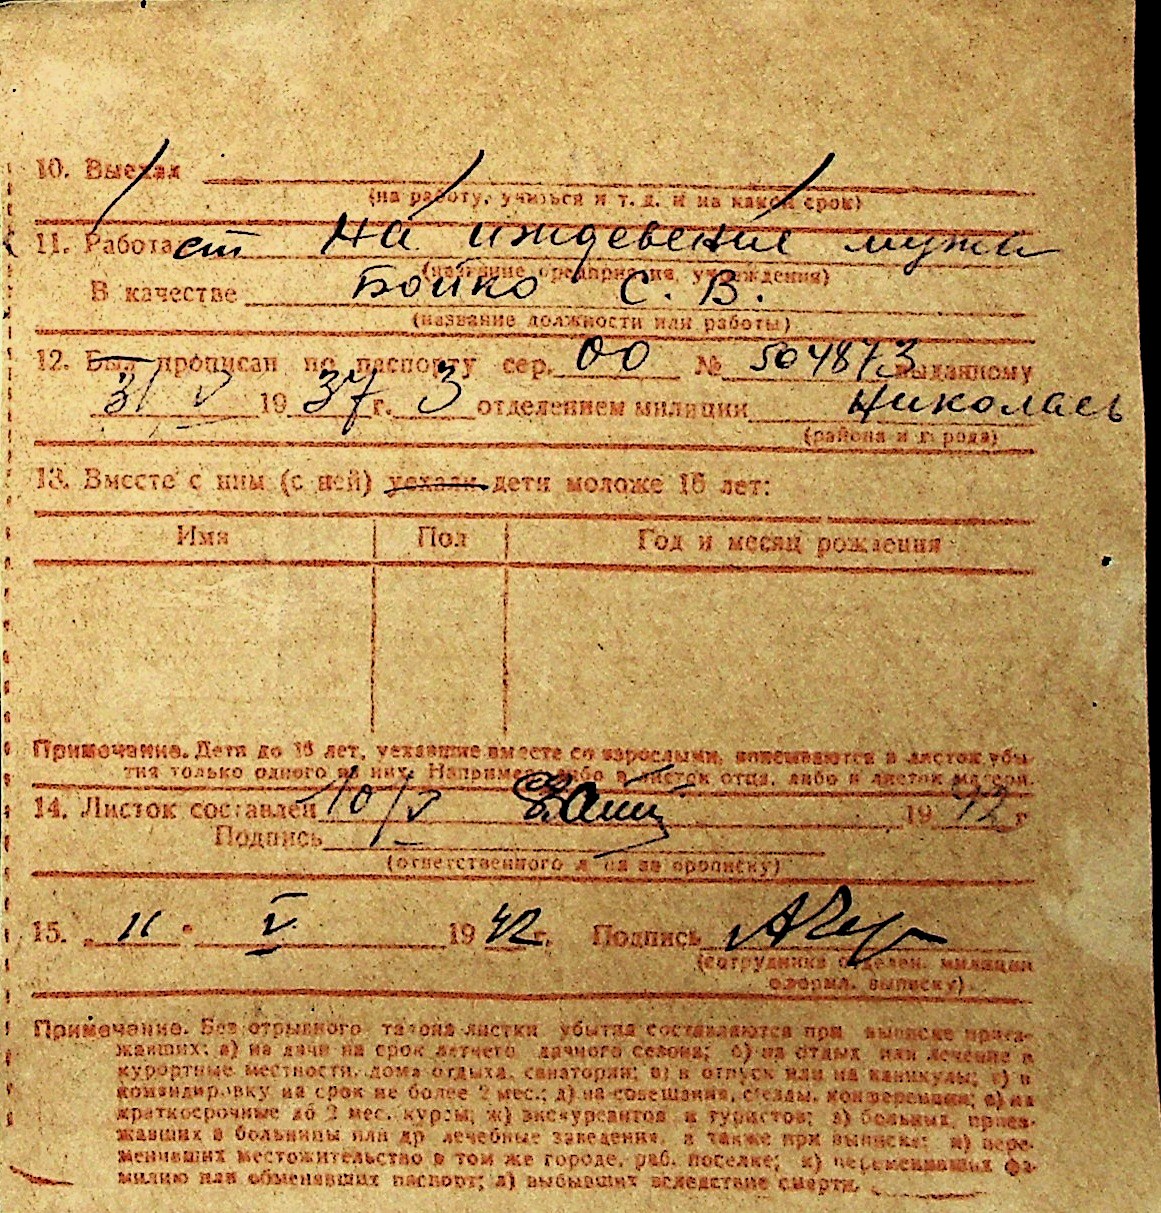 10. Выехал
(на работу, учиться и т. д. и на какой срок)
11. Работает на иждевение мужа
(название предприятия, учреждения)
В качестве Бойко С. В.
(название должности или работы)
12. Был прописан по паспорту сер. 00 № 504873 выданному
31 V 1937 г. 3 отделением милиции Николаев
(района и города)
13. Вместе с ним (с ней) уехали дети моложе 16 лет:
Имя Пол Год и месяц рождения
Примечание. Дети до 16 лет, уехавшие вместе со взрослыми, вписываются в листок убы-
тия только одного из них. Например, либо в листок отца, либо в листок матери.
14. Листок составлен 10/V 1942 г
Подпись
(ответственного лица за прописку)
15. „ 11 " V 1942 г. Подпись
(сотрудника отделен. милиции
оформл. выписку)
Примечание. Без отрывного талона листки убытия составляются при выписке приез-
жавших: а) на дачи на срок летнего дачного сезона; б) на отдых или лечение в
курортные местности, дома отдыха, санатории; в) в отпуск или на каникулы; г) в
командировку на срок не более 2 мес.; д) на совещания, съезды, конференции; е) на
краткосрочные до 2 мес. курсы; ж) экскурсантов и туристов; з) больных, приез-
жавших в больницы или др лечебные заведения, а также при выписке: и) пере-
менивших местожительство в том же городе, раб. поселке; к) переменивших фа-
милию или обменявших паспорт; л) выбывших вследствие смерти.